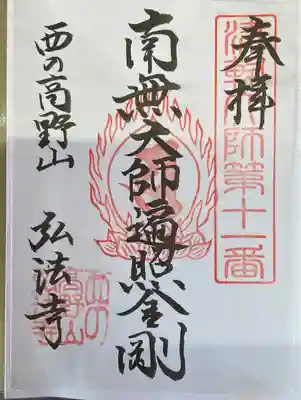 奉拝
師第十一番
南無大師遍照金剛
西の高野山
弘法寺